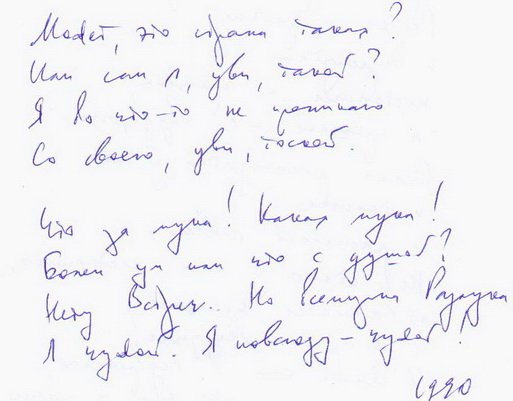 Может, это страна такая?
Или сам я, увы, такой?
Я во что-то не проникаю
Со своею, увы, тоской.
Что за мука! Какая мука!
Болен ум или что с душой?
Нету Встреч.. Но Разлука
Я чужой. Я повсюду – чужой!
1990